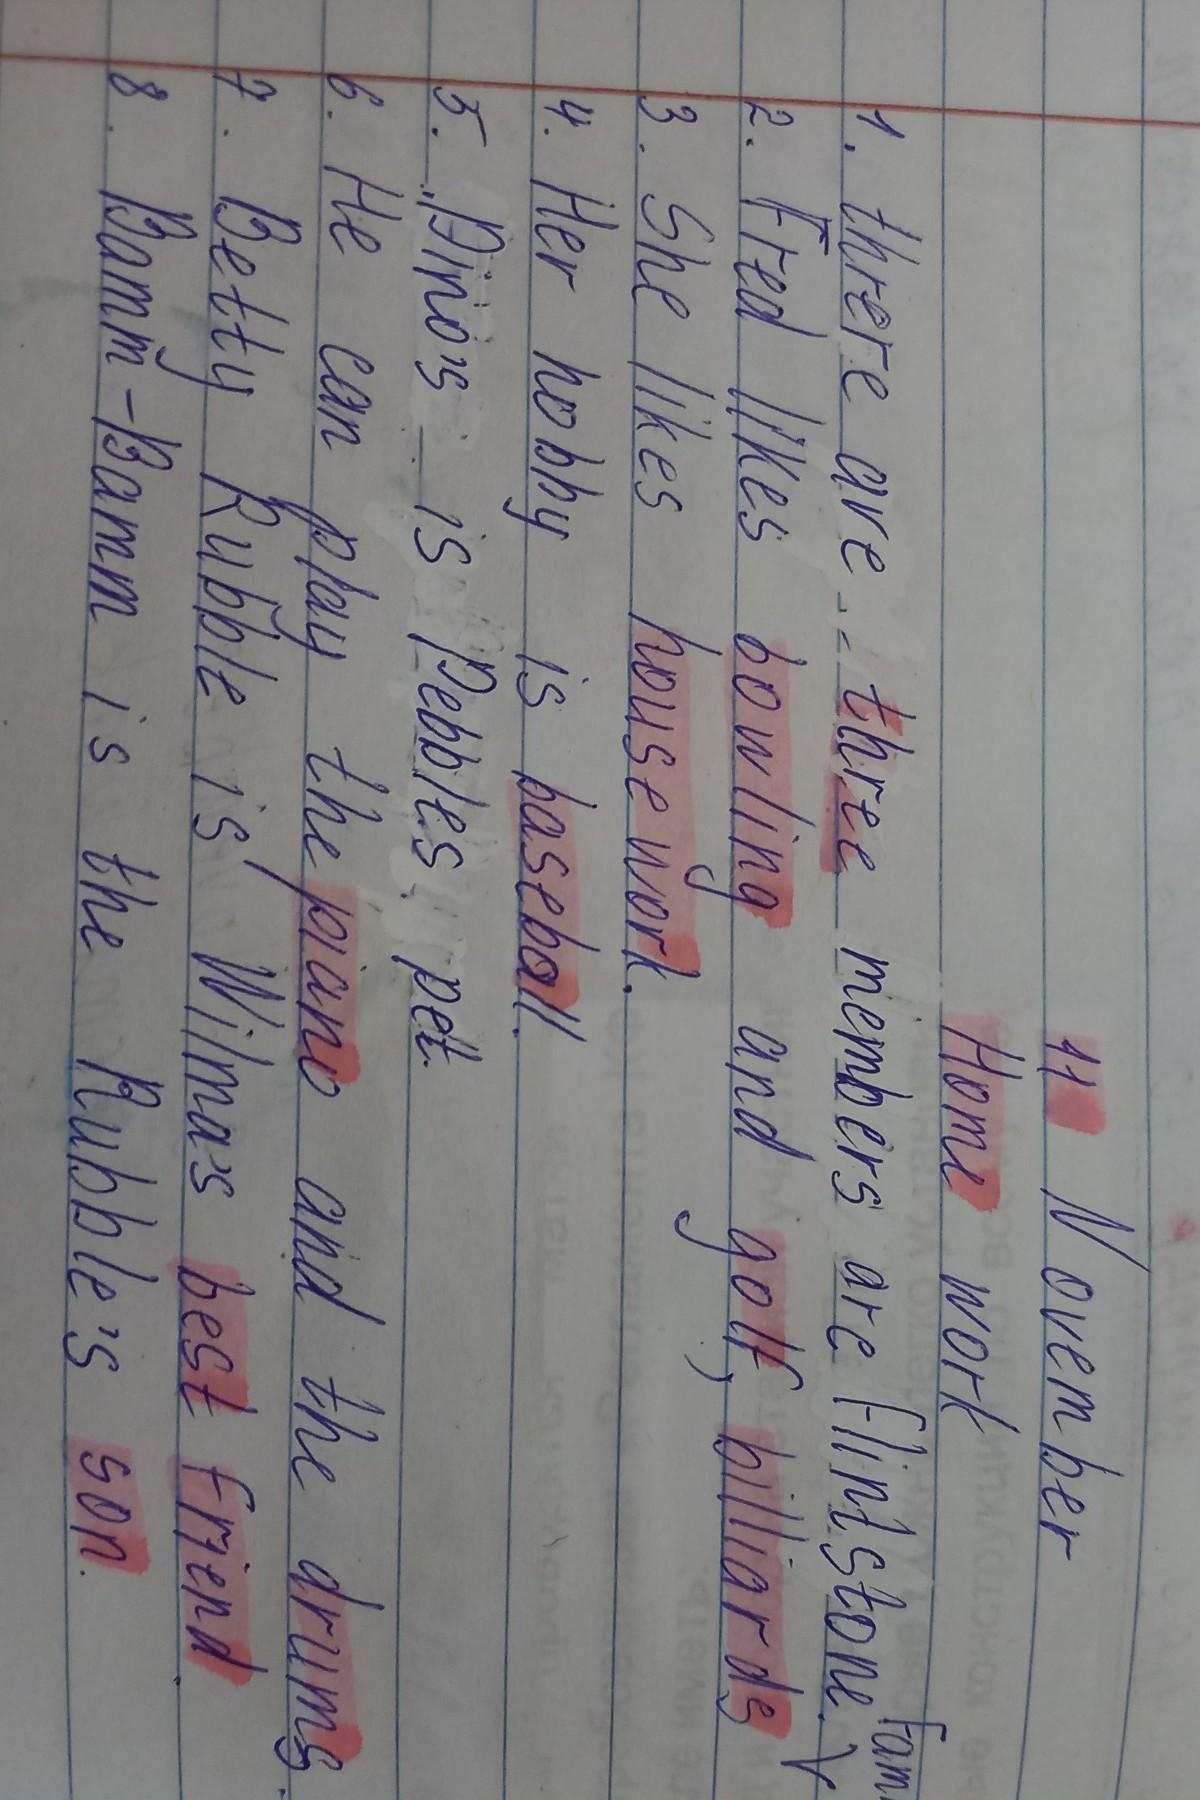 11 November
Home work
1. there are three members are Flintstone. Fam
2. Fred likes bowling and golf, billiards
3. She likes housework.
4. Her hobby is baseball.
5. Dino's is Pebbles. pet.
6. He can play the piano and the drums.
7. Betty Rubble is Wilma's best friend.
8. Bamm-Bamm is the Rubble's son.